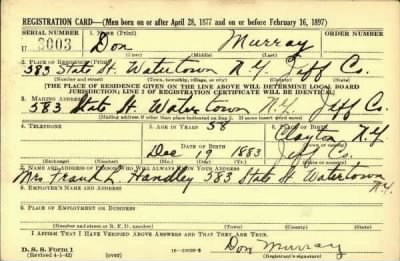 REGISTRATION CARD—(Men born on or after April 28, 1877 and on or before February 16, 1897)
SERIAL NUMBER 1. NAME (Print) ORDER NUMBER
U 3003 Don Murray
(First) (Middle) (Last)
2. PLACE OF RESIDENCE (Print)
583 State St. Watertown N.Y. Jeff Co.
(Number and street) (Town, township, village, or city) (County) (State)
[THE PLACE OF RESIDENCE GIVEN ON THE LINE ABOVE WILL DETERMINE LOCAL BOARD
JURISDICTION; LINE 2 OF REGISTRATION CERTIFICATE WILL BE IDENTICAL]
3. MAILING ADDRESS
583 State St. Watertown N.Y. Jeff Co.
[Mailing address if other than place indicated on line 2. If same insert word same]
4. TELEPHONE 5. AGE IN YEARS 6. PLACE OF BIRTH
58 Clayton N.Y.
DATE OF BIRTH (Town or county)
Dec 19 1883 Jeff Co.
(Exchange) (Number) (Mo.) (Day) (Yr.) (State or country)
7. NAME AND ADDRESS OF PERSON WHO WILL ALWAYS KNOW YOUR ADDRESS
Mrs. Frank L. Handley 583 State St. Watertown N.Y.
8. EMPLOYER'S NAME AND ADDRESS
9. PLACE OF EMPLOYMENT OR BUSINESS
(Number and street or R. F. D. number) (Town) (County) (State)
I AFFIRM THAT I HAVE VERIFIED ABOVE ANSWERS AND THAT THEY ARE TRUE.
D. S. S. Form 1
(Revised 4-1-42) (over)
Don Murray
(Registrant's signature)